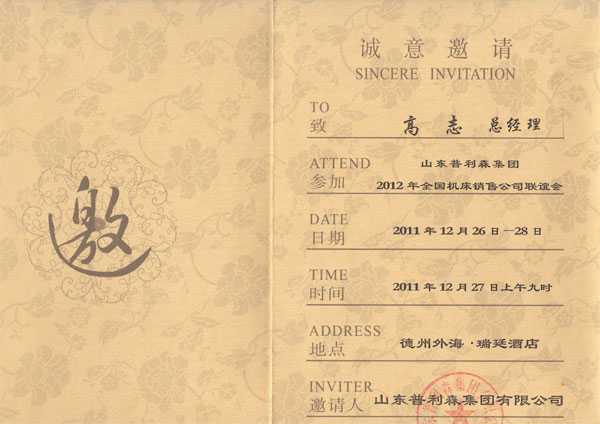 邀
诚意邀请
SINCERE INVITATION
TO
致
高志 总经理
ATTEND
参加
山东普利森集团
2012年全国机床销售公司联谊会
DATE
日期
2011年12月26日—28日
TIME
时间
2011年12月27日上午九时
ADDRESS
地点
德州外海·瑞廷酒店
INVITER
邀请人
山东普利森集团有限公司